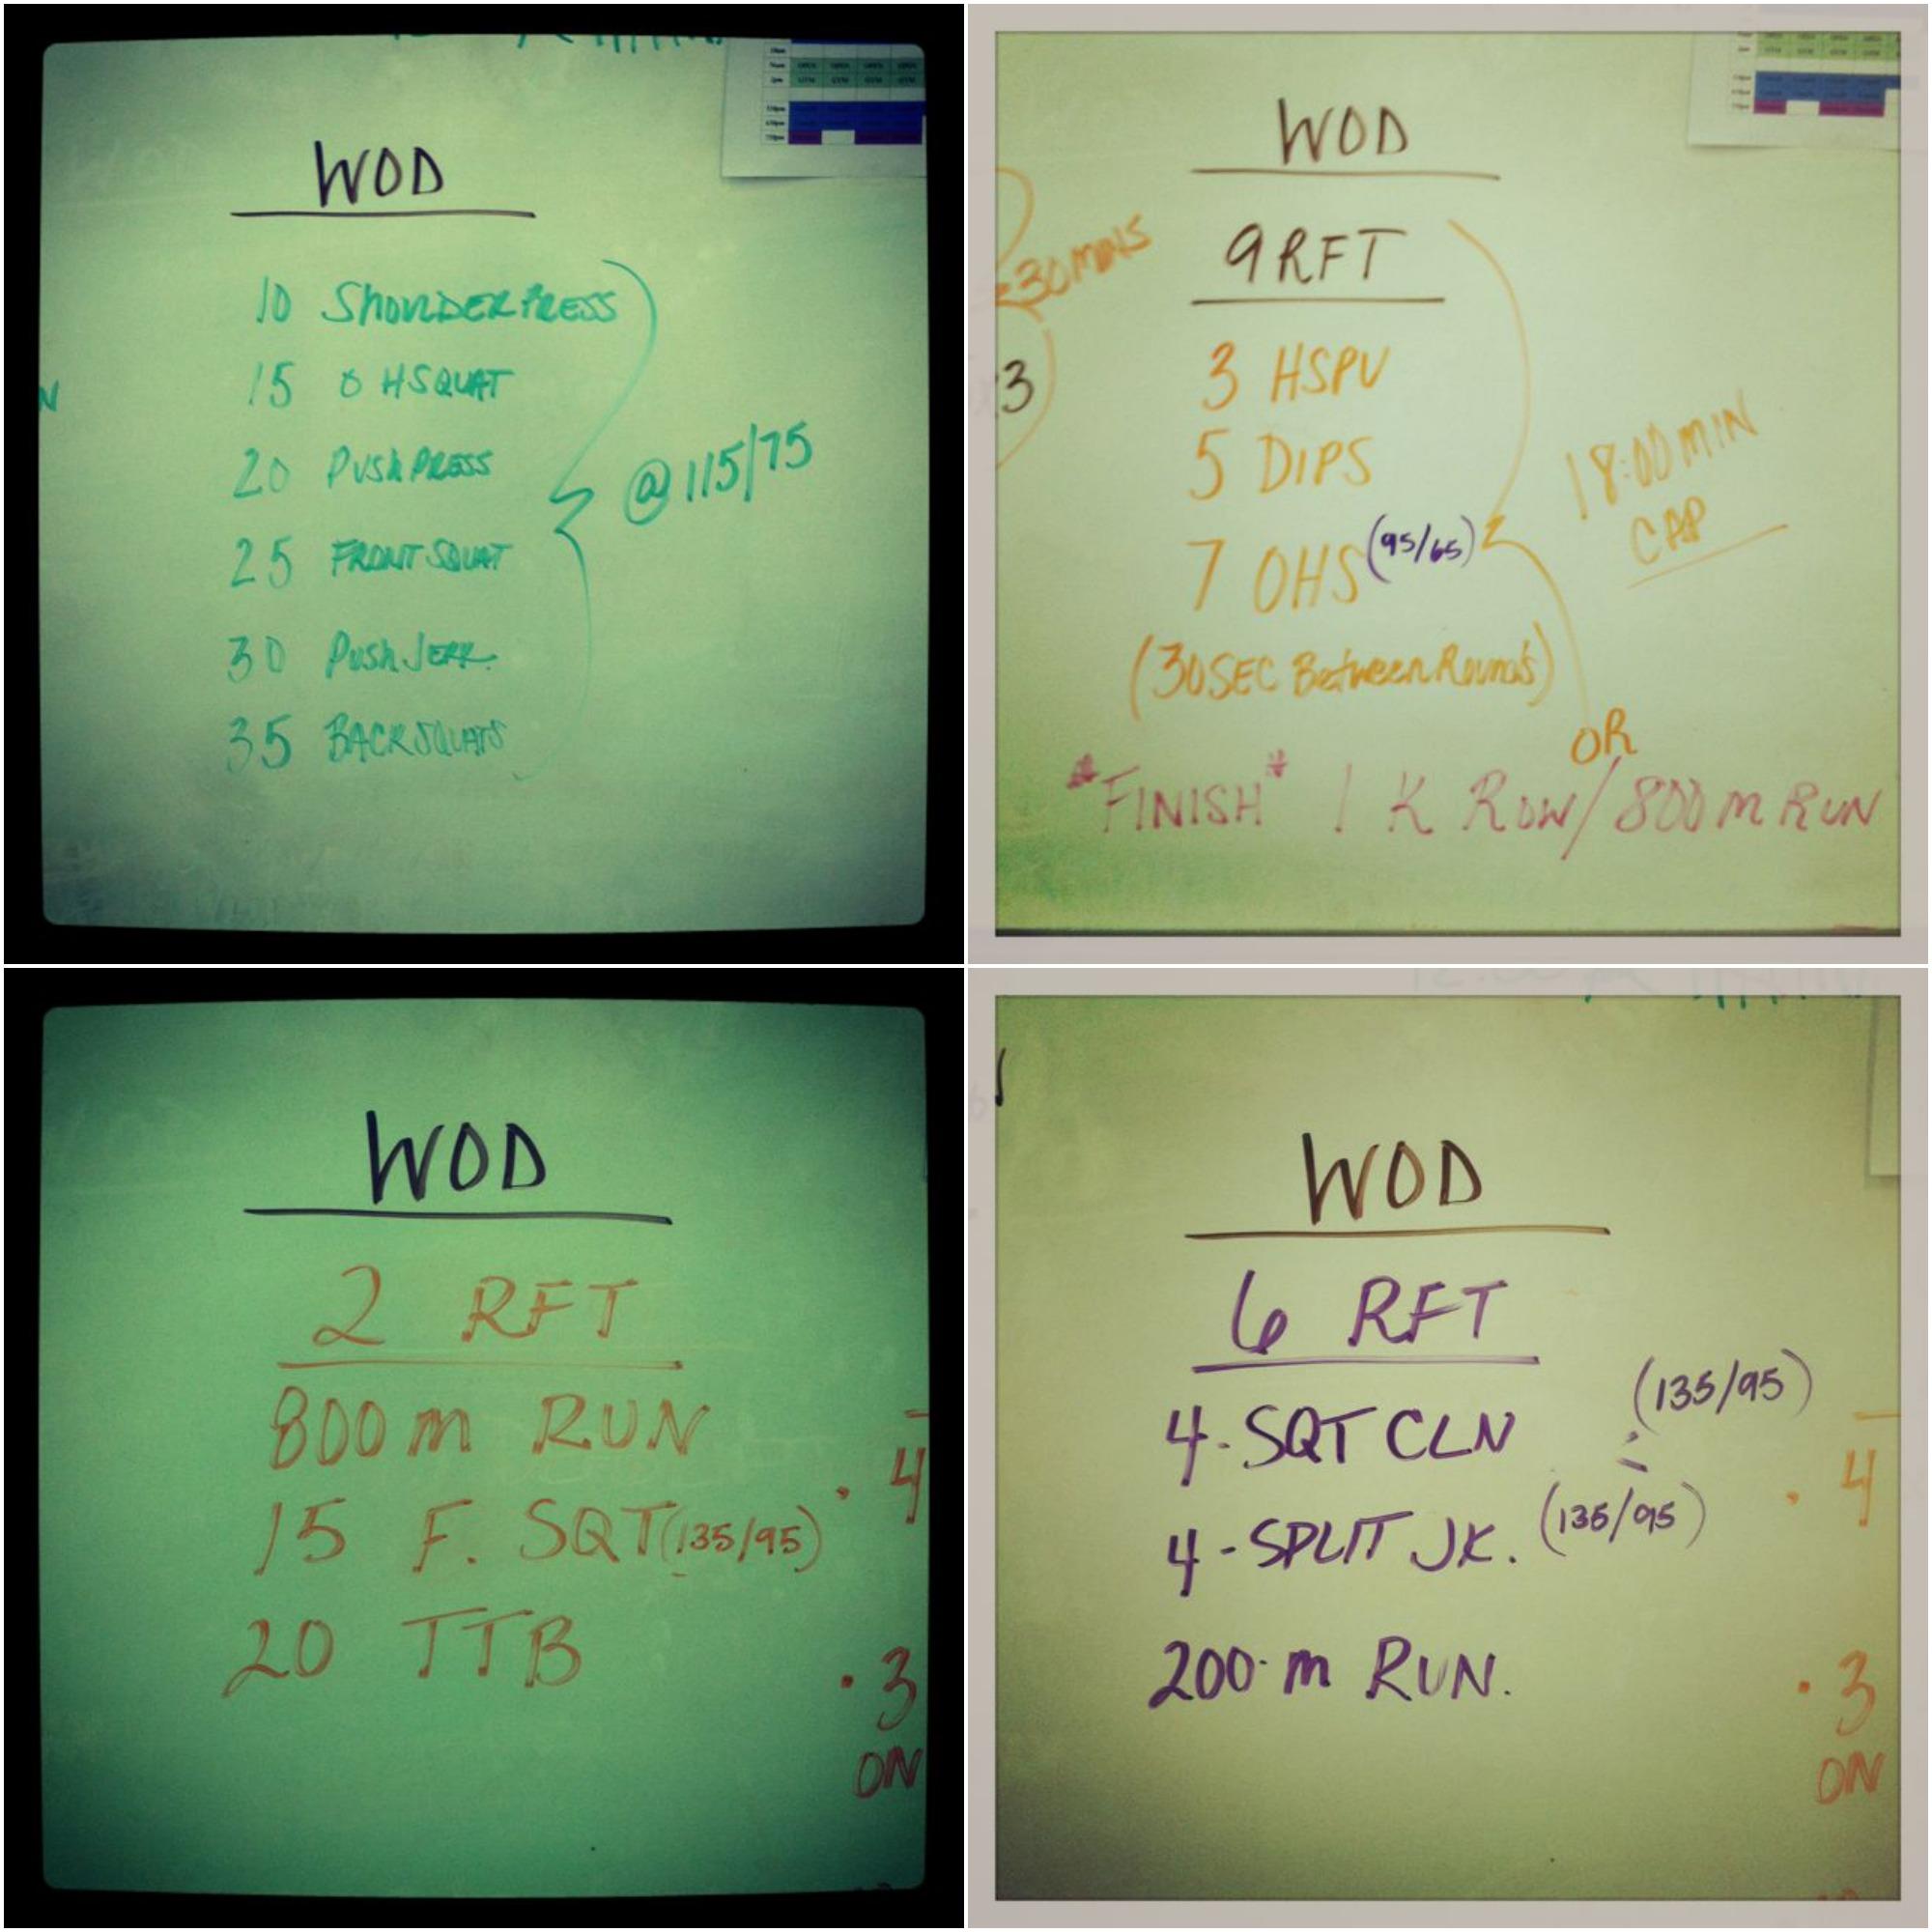 WOD
10 SHOULDER PRESS
15 OHSQUAT
20 PUSH PRESS
25 FRONT SQUAT
30 PUSH JERK.
35 BACK SQUATS
@115/75
WOD
9 RFT
3 HSPU
5 DIPS
7 OHS (95/65)
(30 SEC Between Rounds)
18:00 MIN
CAP
OR
*FINISH* 1 K ROW/800 m RUN
30 MINS
3
WOD
2 RFT
800 m RUN
15 F. SQT (135/95)
20 TTB
. 4
. 3
ON
WOD
6 RFT
4-SQT CLN (135/95)
4-SPLIT JK. (135/95)
200 m RUN.
. 4
. 3
ON